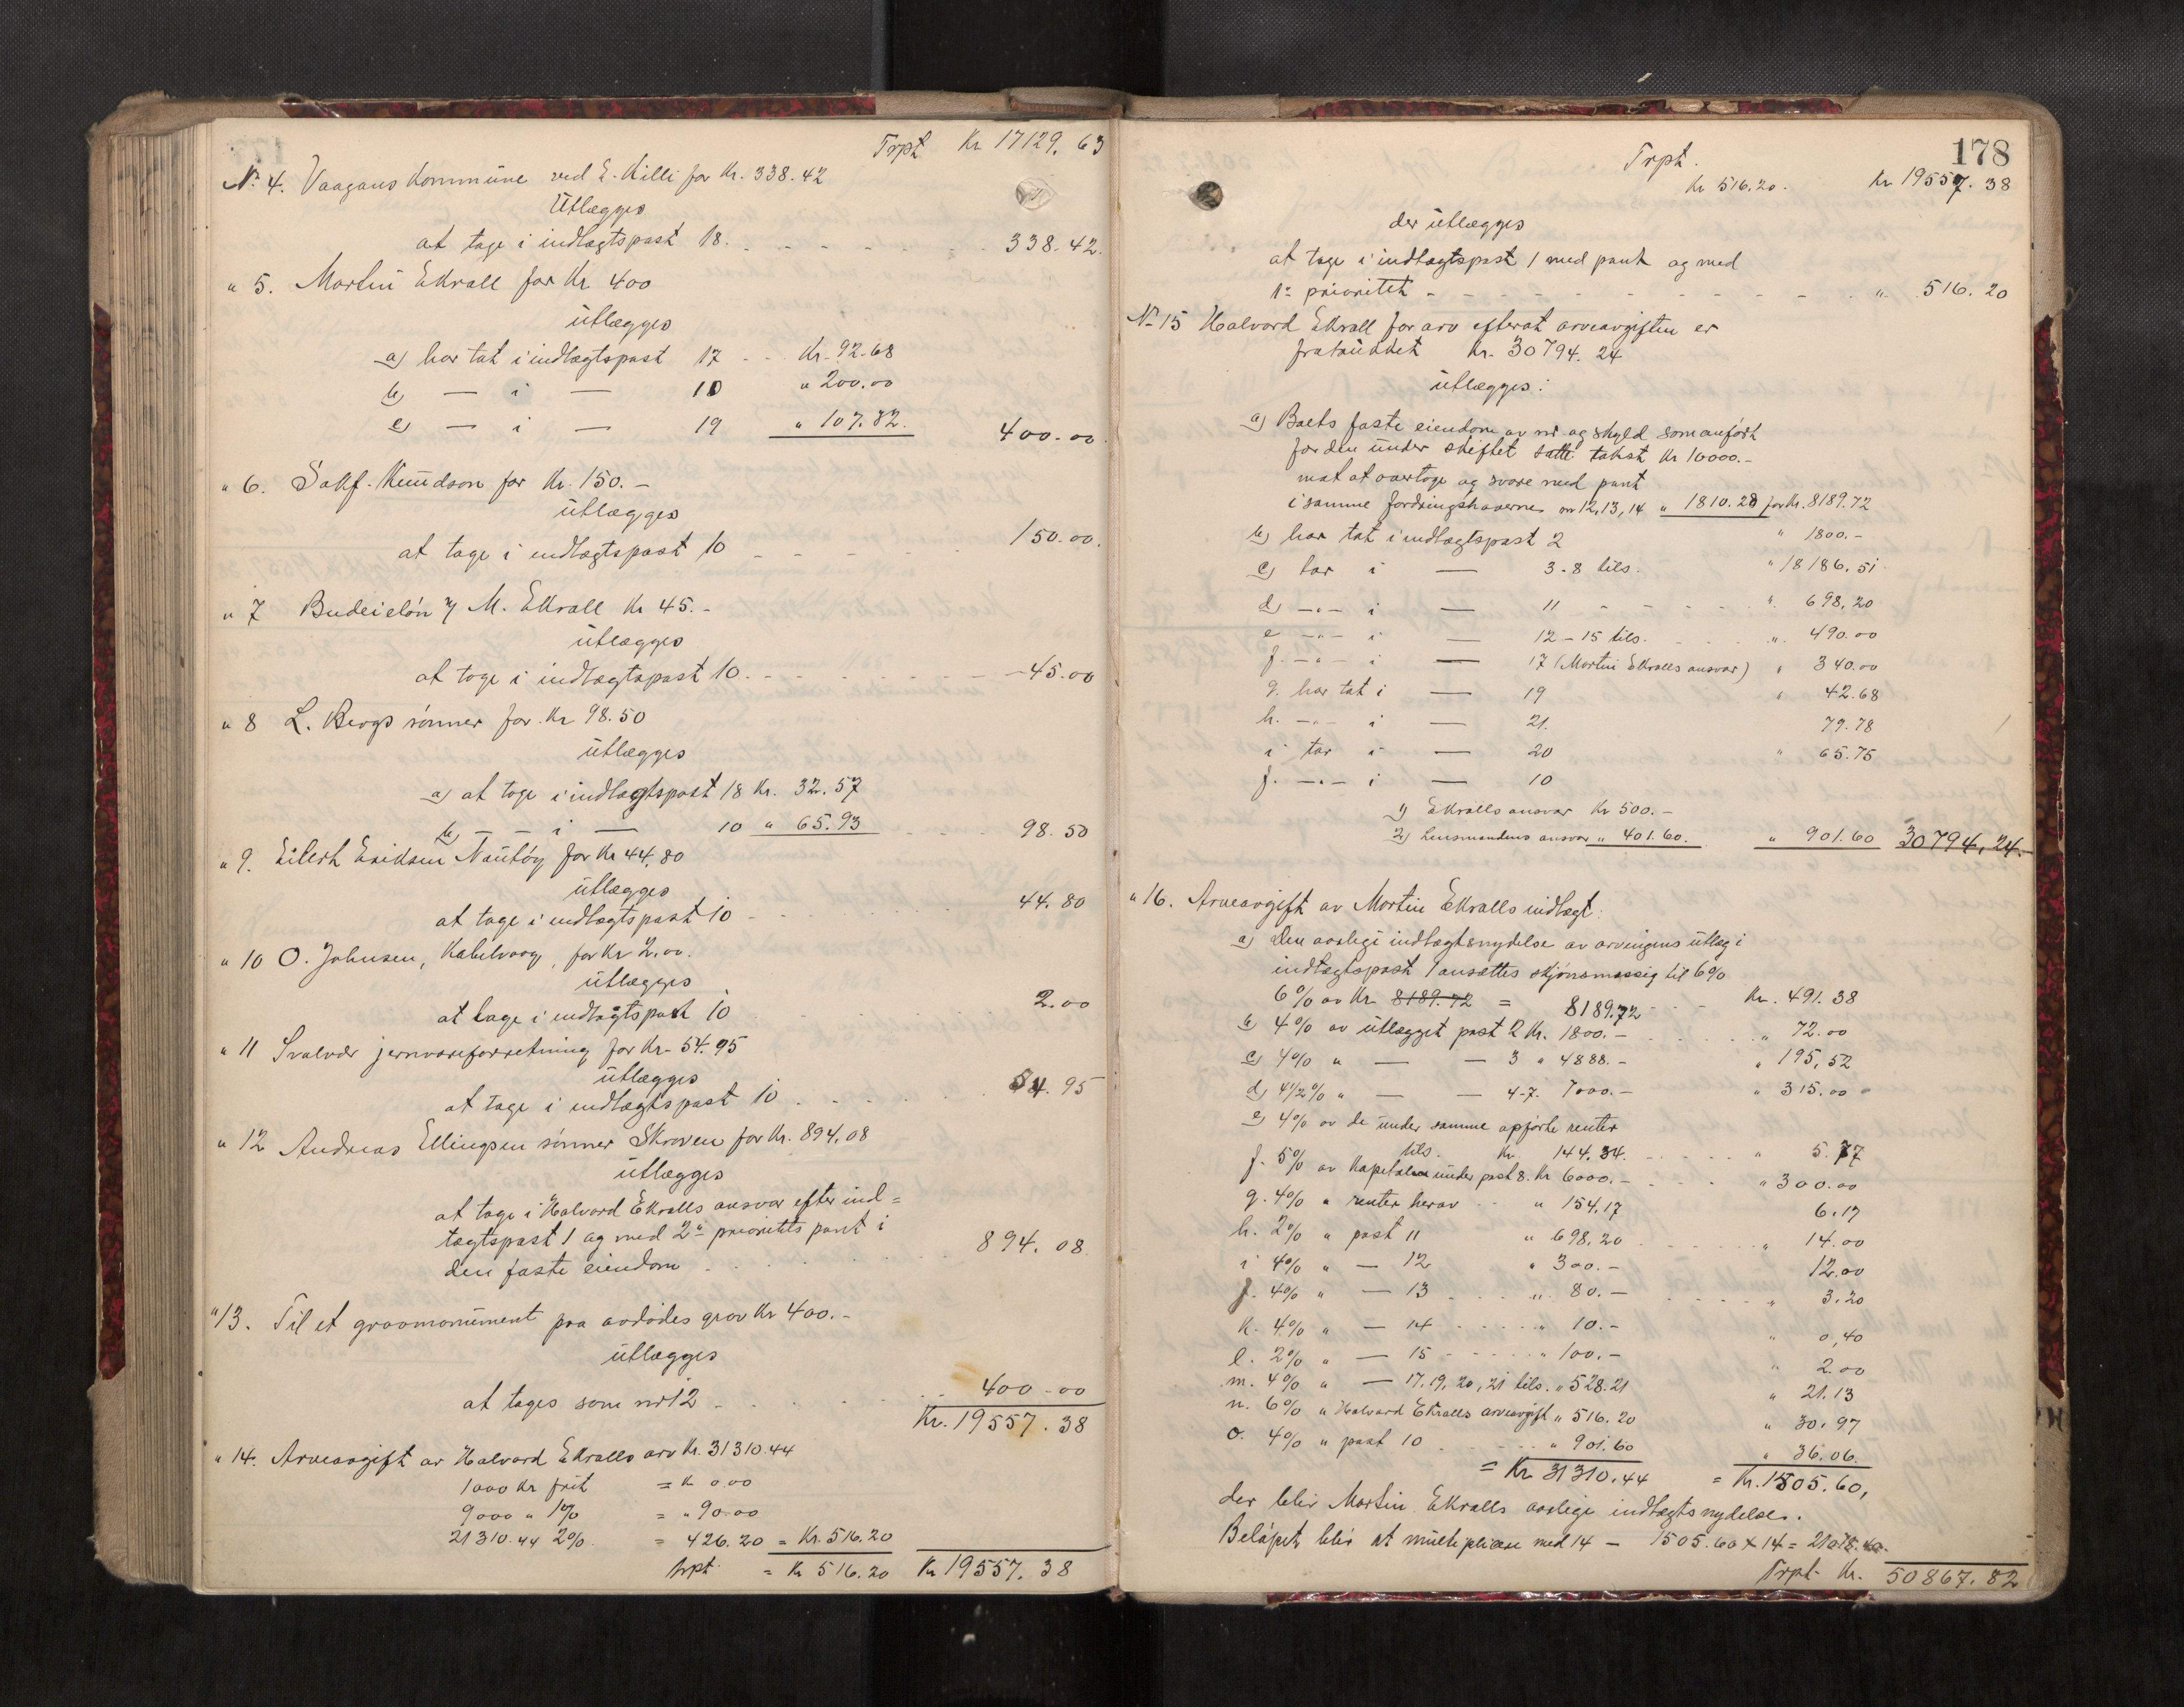 Trpt Kr 17129. 63
Nr 4. Vaagans Kommune ved E. Killi for Kr. 338.42
Utlægges
at tage i indtægtspost 18. 338.42.
" 5. Martin Ekrall for Kr 400
utlægges
a) har tat i indtægtspost 17 Kr. 92.68
b) — i — 10 " 200.00
c) — i — 19 " 107.32. 400.00
" 6. Sakf. Knudson for Kr. 150.-
utlægges
at tage i indtægtspost 10 150.00.
" 7 Budeieløn M. Ekrall Kr 45.-
utlægges
at tage i indtægtspost 10. 45.00
" 8 L. Bergs sønner for Kr 98.50
utlægges
a) at tage i indtægtspost 18 Kr. 32.57
b) — — i — 10 " 65.93 98.50
" 9. Eilert Eriksen Nautøy for Kr 44.80
utlægges
at tage i indtægtspost 10 44.80
" 10 O. Johnsen, Kabelvaag, for Kr 2.00.
utlægges
at tage i indtægtspost 10 2.00
" 11 Svolvær jernvareforretning for Kr. 54.95
utlægges
at tage i indtægtspost 10 54.95
" 12 Andreas Ellingsen sønner Skroven for Kr. 894.08
utlægges
at tage i Halvard Ekralls ansvar efter ind=
tægtspost 1 og med 2den prioritets pant i
den faste eiendom 894.08
" 13. Til et gravmonument paa avdødes grav Kr 400.-
utlægges
at tages som nr 12 400-00
Kr. 19557.38
" 14. Arveavgift av Halvard Ekralls arv Kr. 31310.44
1000 Kr frit = Kr 0.00
9000 " 1% = " 90.00
21310.44 2% = 426.20 = Kr. 516.20
trpt = Kr 516.20 Kr 19557.38
178
Trpt.
Kr 516.20. Kr 19557.38
der utlægges
at tage i indtægtspost 1 med pant og med
1ste prioritet " 516.20
Nr 15 Halvard Ekrall for arv efterat arveavgiften er
fratrukket Kr. 30794.24
utlægges:
a) Boets faste eiendom av nr og skyld som anført
for den under skiftet satte takst Kr 10000.-
mot at overtage og svare med pant
i samme fordringshaverne nr 12,13,14 " 1810.28 for Kr. 8189.72
b) har tat i indtægtspost 2 " 1800.-
c) tar i — 3-8 tils. " 18186.51
d) —"— i — 11 " 698.20
e —"— i — 12-15 tils. " 490.00
f. —"— i — 17 (Martin Ekralls ansvar) " 340.00
g. har tat i — 19 " 42.68
h. —"— i — 21. 79.78
i tar i — 20 " 65.75
j. —"— i — 10
1) Ekralls ansvar Kr 500.-
2) Lensmandens ansvar " 401.60. " 901.60 30794.24.
" 16. Arveavgift av Martin Ekralls indtægt:
a) Den aarlige indtægtsnydelse av arvingens utlæg i
indtægtspost 1 ansættes skjønsmæssig til 6%
6% av Kr 8189.72 = 8189.72 Kr. 491.38
b) 4% av utlægget post 2 Kr. 1800.- " 72.00
c) 4% " — — 3 " 4888.- " 195.52
d) 4 1/2% " — — 4-7. 7000.- " 315.00
e) 4% av de under samme opførte renter
tils. Kr. 144.34. " 5.77
f. 5% av Kapitalen under post 8. Kr 6000.- " 300.00
g. 4% " renter herav " 154.17 6.17
h. 2% " post 11 " 698.20 " 14.00
i 4% " — 12 " 300.- 12.00
j. 4% " — 13 " 80.- " 3.20
k. 4% " — 14 " 10.- " 0,40
l. 2% " — 15 " 100.- " 2.00
m. 4% " — 17,19,20,21 tils. " 528.21 " 21.13
n. 6% " Halvard Ekralls arveavgift " 516.20 " 30.97
o. 4% " post 10 " 901.60 " 36.06.
= Kr. 31310.44 = Kr. 1505.60,
der blir Martin Ekralls aarlige indtægtsnydelse.
Beløpet blir at multiplicere med 14 — 1505.60 x 14 =
Trpt. Kr. 50867.82